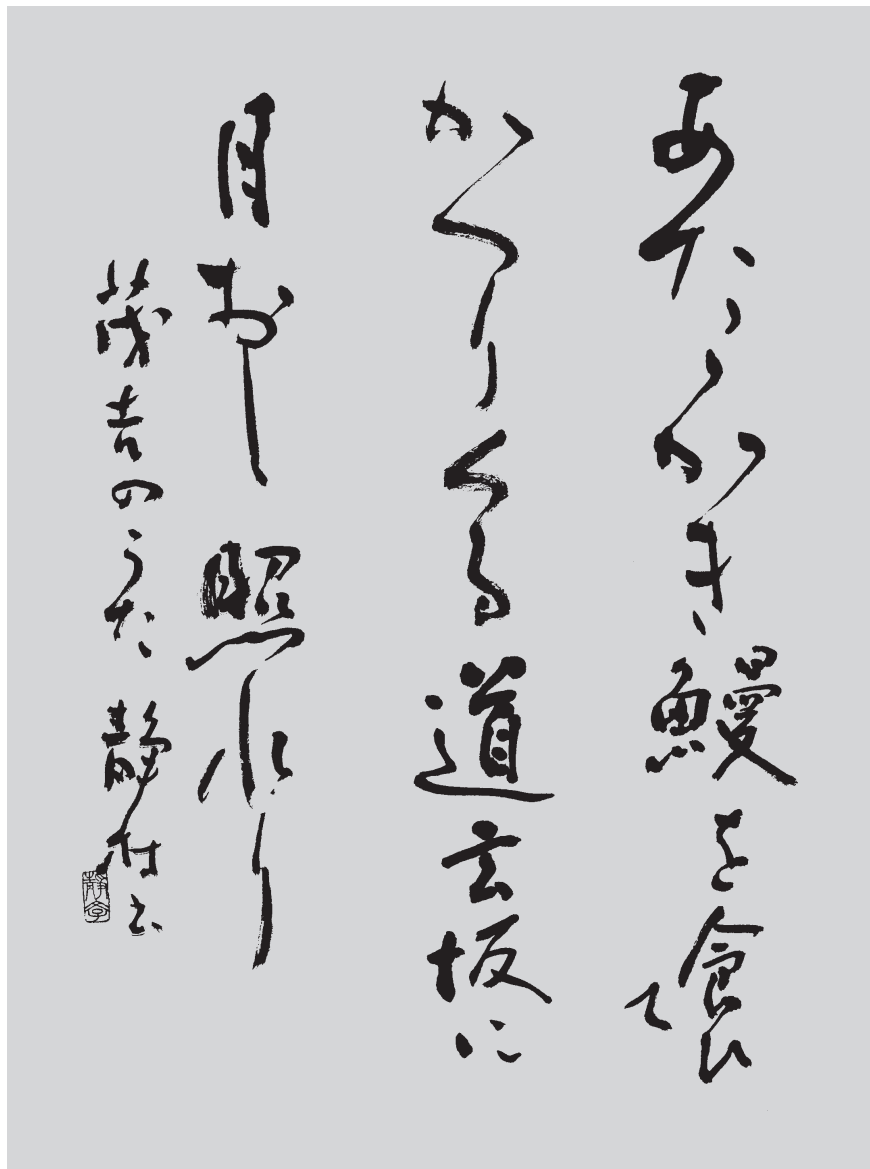 あたゝかき鰻を食ひて
かへりくる道玄坂に
月おし照れり
茂吉のうた 静村書